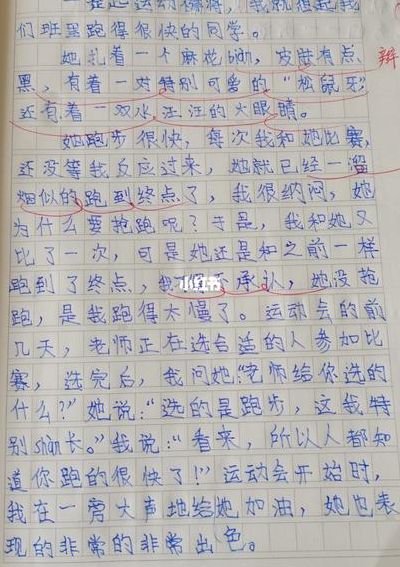 一提起运动健将，我就想起我
们班里跑得很快的同学。
她扎着一个麻花biàn，皮肤有点
辩
黑，有着一对特别可爱的"松鼠牙"，
还有着一双水汪汪的大眼睛。
她跑步很快，每次我和她比赛，
还没等我反应过来，她就已经一溜
烟似的跑到终点了，我很纳闷，她
为什么要抢跑呢？于是，我和她又
比了一次，可是她还是和之前一样
跑到了终点，我 承认，她没抢
小红书
跑，是我跑得太慢了。运动会的前
几天，老师正在选合适的人参加比
赛，选完后，我问她："老师给你选的
什么？"她说："选的是跑步，这我特
别shàn长。"我说："看来，所以人都知
道你跑的很快了！"运动会开始时，
我在一旁大声地给她加油，她也表
现的非常的非常出色。